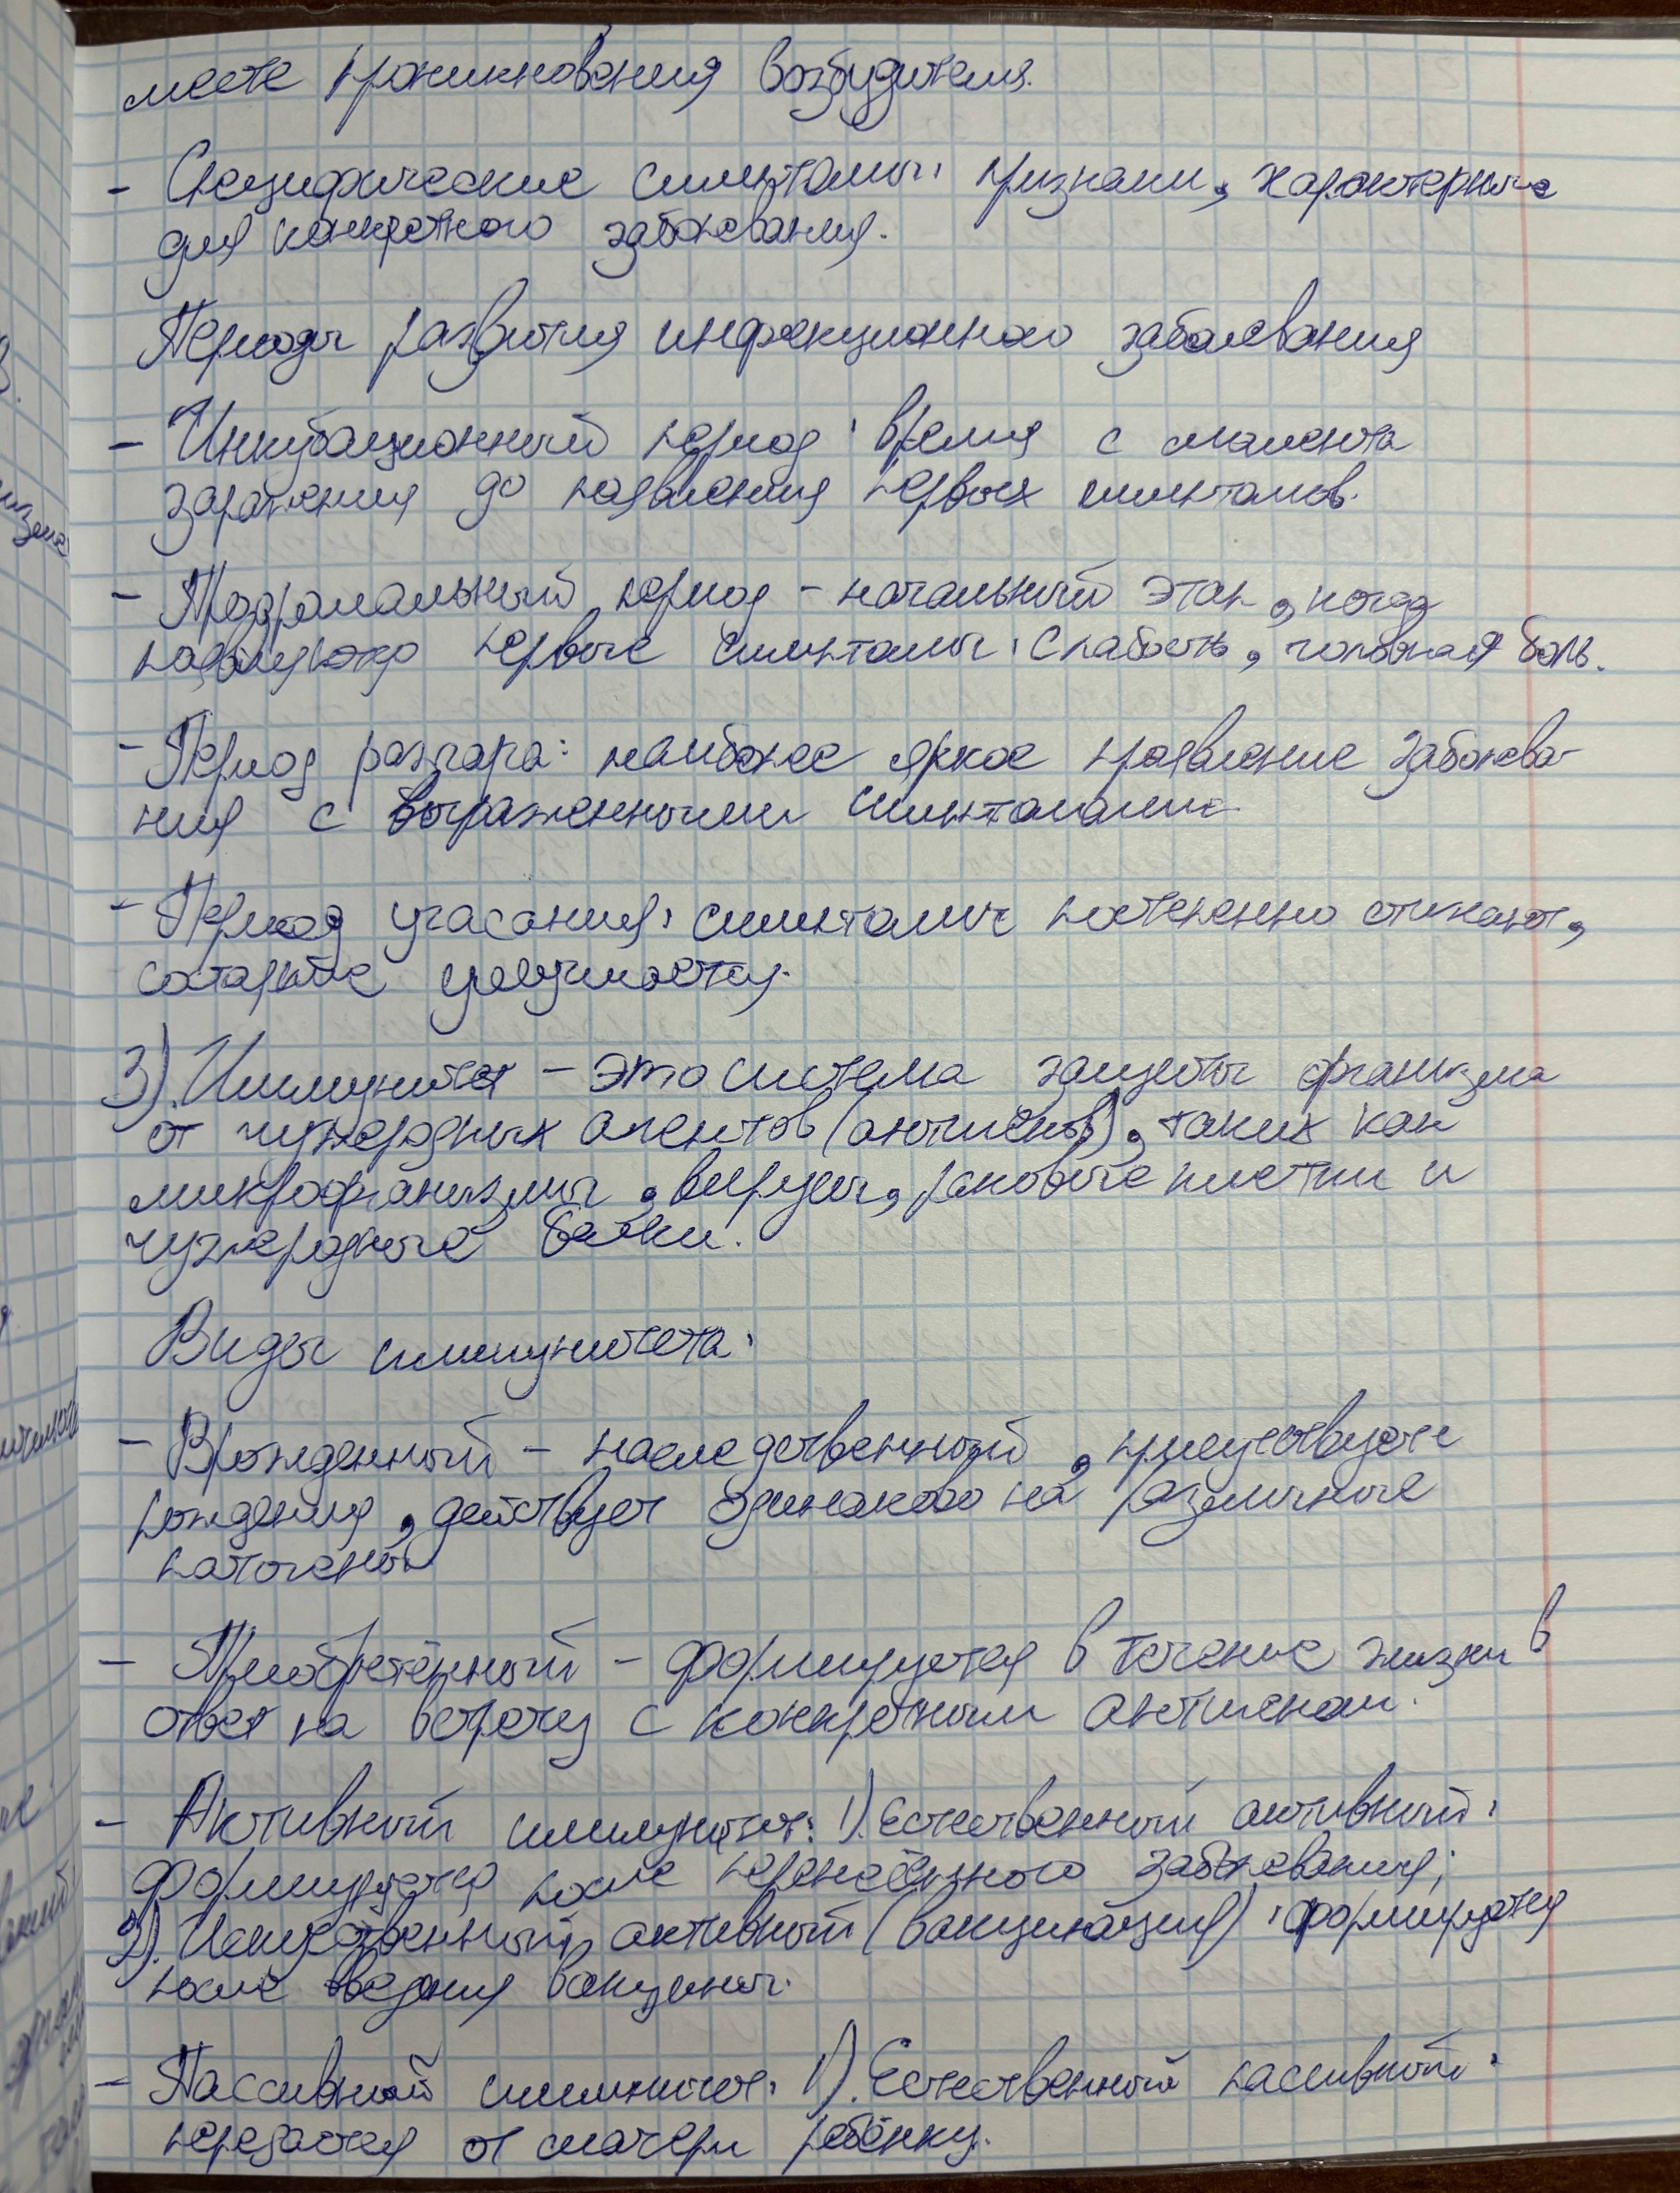 месте проникновения возбудителя.
- Специфические симптомы: признаки, характерные
для конкретного заболевания.
Периоды развития инфекционного заболевания
- Инкубационный период: время с момента
заражения до появления первых симптомов.
- Продромальный период - начальный этап, когда
появляются первые симптомы: слабость, головная боль.
- Период разгара: наиболее яркое проявление заболева-
ния с выраженными симптомами
- Период угасания: симптомы постепенно стихают,
состояние улучшается.
3). Иммунитет - это система защиты организма
от чужеродных агентов (антигенов), таких как
микроорганизмы, вирусы, раковые клетки и
чужеродные белки.
Виды иммунитета:
- Врожденный - наследственный, присутствует с
рождения, действует одинаково на различные
патогены
- Приобретённый - формируется в течение жизни в
ответ на встречу с конкретным антигеном.
- Активный иммунитет: 1). Естественный активный:
формируется после перенесённого заболевания;
2). Искусственный активный (вакцинация): формируется
после введния вакцины.
- Пассивный иммунитет: 1). Естественный пассивный:
передается от матери ребёнку.